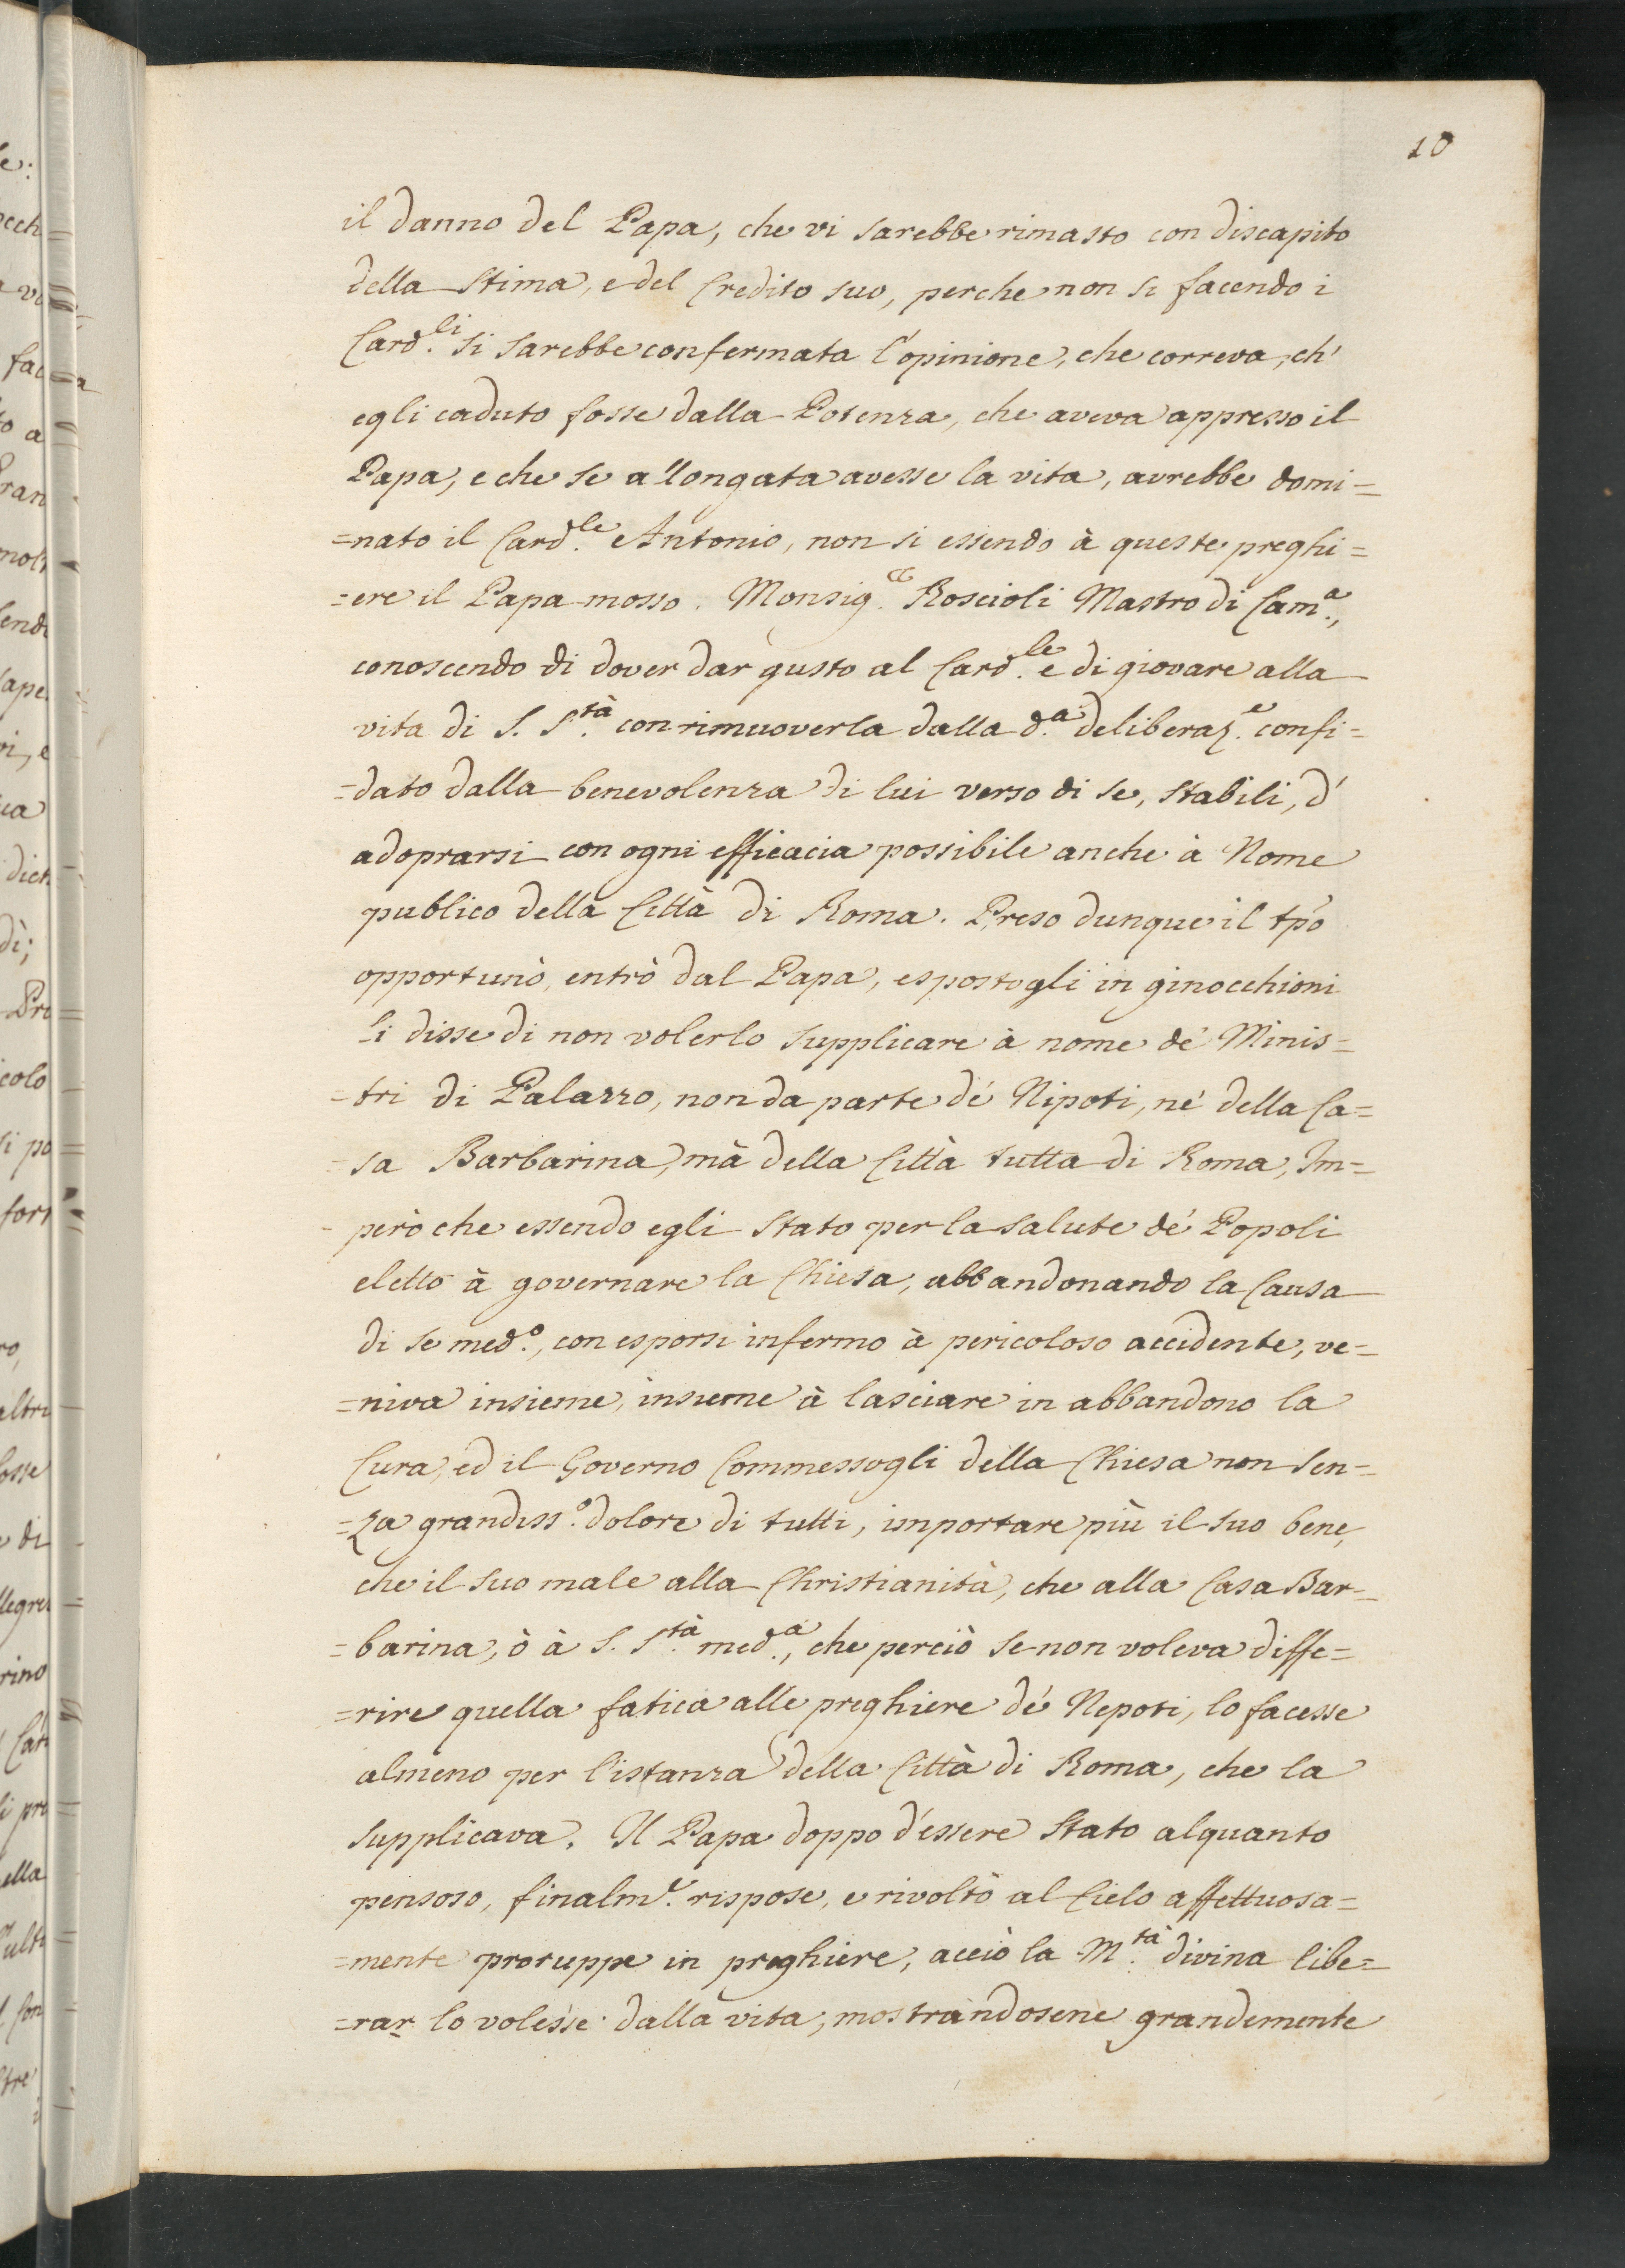 10
il danno del Papa, che vi sarebbe rimasto con discapito
della stima, e del Credito suo, perche non si facendo i
Card.li si sarebbe confermata l'opinione, che correva, ch'
egli caduto fosse dalla Potenza, che aveva appresso il
Papa, e che se allongata avesse la vita, avrebbe domi=
=nato il Card.le Antonio, non si essendo à queste preghi=
=ere il Papa mosso. Monsig. Roscioli Mastro di Cam.a,
conoscendo di dover dar gusto al Card.le e di giovare alla
vita di S. S.tà con rimuoverla dalla d.a deliberaz.e confi=
=dato dalla benevolenza di lui verso di se, stabili, d'
adoprarsi con ogni efficacia possibile anche à Nome
publico della Città di Roma. Preso dunque il tpo
opportunò, entrò dal Papa, espostogli in ginocchioni
li disse di non volerlo supplicare à nome de' Minis=
=tri di Palazzo, non da parte de' Nipoti, ne' della Ca=
=sa Barbarina, mà della Città tutta di Roma, Im=
però che essendo egli stato per la salute de' Popoli
eletto à governare la Chiesa, abbandonando la Causa
di se med.o, con esporsi infermo à pericoloso accidente, ve=
=niva insieme, insieme à lasciare in abbandono la
Cura, ed il Governo Commessogli della Chiesa non sen=
=za grandiss.o dolore di tutti, importare più il suo bene,
che il suo male alla Christianità, che alla Casa Bar=
=barina, ò à S. S.tà med.a, che perciò se non voleva diffe=
=rire quella fatica alle preghiere de' Nepoti, lo facesse
almeno per l'istanza della Città di Roma, che la
supplicava. Il Papa doppo d'essere stato alquanto
pensoso, finalm.e rispose, e rivoltò al Cielo affettuosa=
=mente proruppe in preghiere, acciò la M.tà divina libe=
=rar lo volesse dalla vita, mostrandosene grandemente